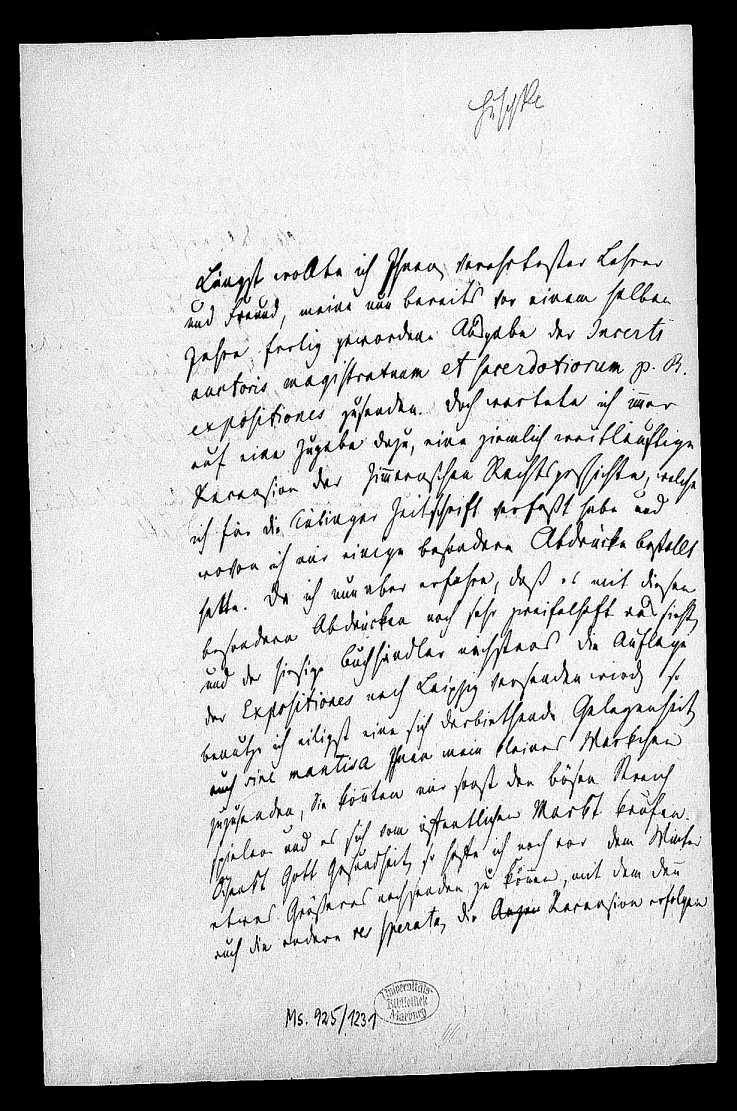 Huschke
Längst wollte ich Ihnen, verehrtester Lehrer
und Freund, meine nun bereits vor einem halben
Jahre fertig gewordene Ausgabe der Incerti
auctoris magistratuum et sacerdotiorum p. R.
expositiones zusenden. Doch wartete ich immer
auf eine Zugabe dazu, eine ziemlich weitläuftige
Recension der Zimmernschen Rechtsgeschichte, welche
ich für die Tübinger Zeitschrift verfaßt habe und
wovon ich mir einige besondere Abdrücke bestellt
hatte. Da ich nun aber erfahre, daß es mit diesen
besondern Abdrücken noch sehr zweifelhaft aussieht,
und der hiesige Buchhändler nächstens die Auflage
der Expositiones nach Leipzig versenden wird, so
benutze ich eiligst eine sich darbiethende Gelegenheit,
auch sine mantisa Ihnen mein kleines Werkchen
zuzusenden, Sie könnten mir sonst den bösen Streich
spielen und es sich vom öffentlichen Markt kaufen.
Schenkt Gott Gesundheit, so hoffe ich noch vor dem Winter
etwas Größeres nachsenden zu können, mit dem denn
auch die andere res sperata, die Recension erfolgen
Ms. 925/1231
Universitäts
Bibliothek
Marburg